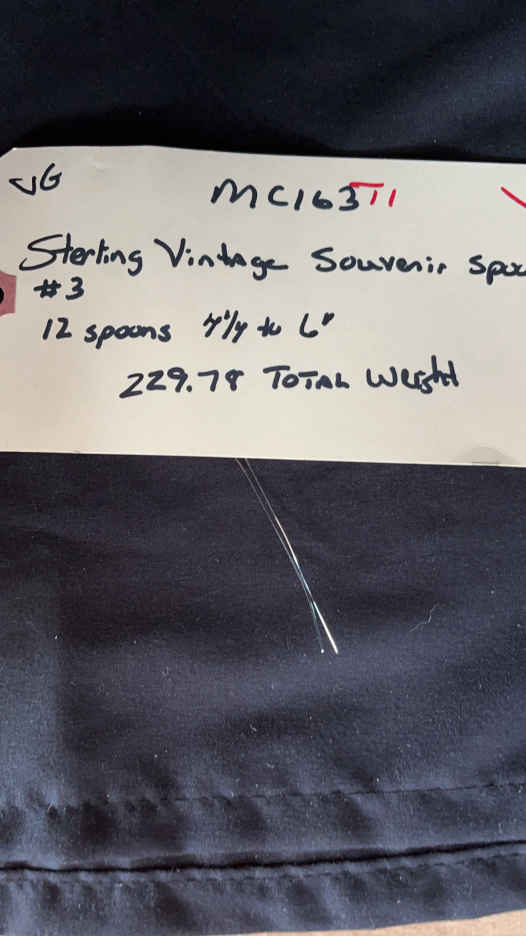 VG
MC163T1
Sterling Vintage Souvenir Spoo
#3
12 spoons 4 1/4 to 6"
229.78 TOTAL Weight